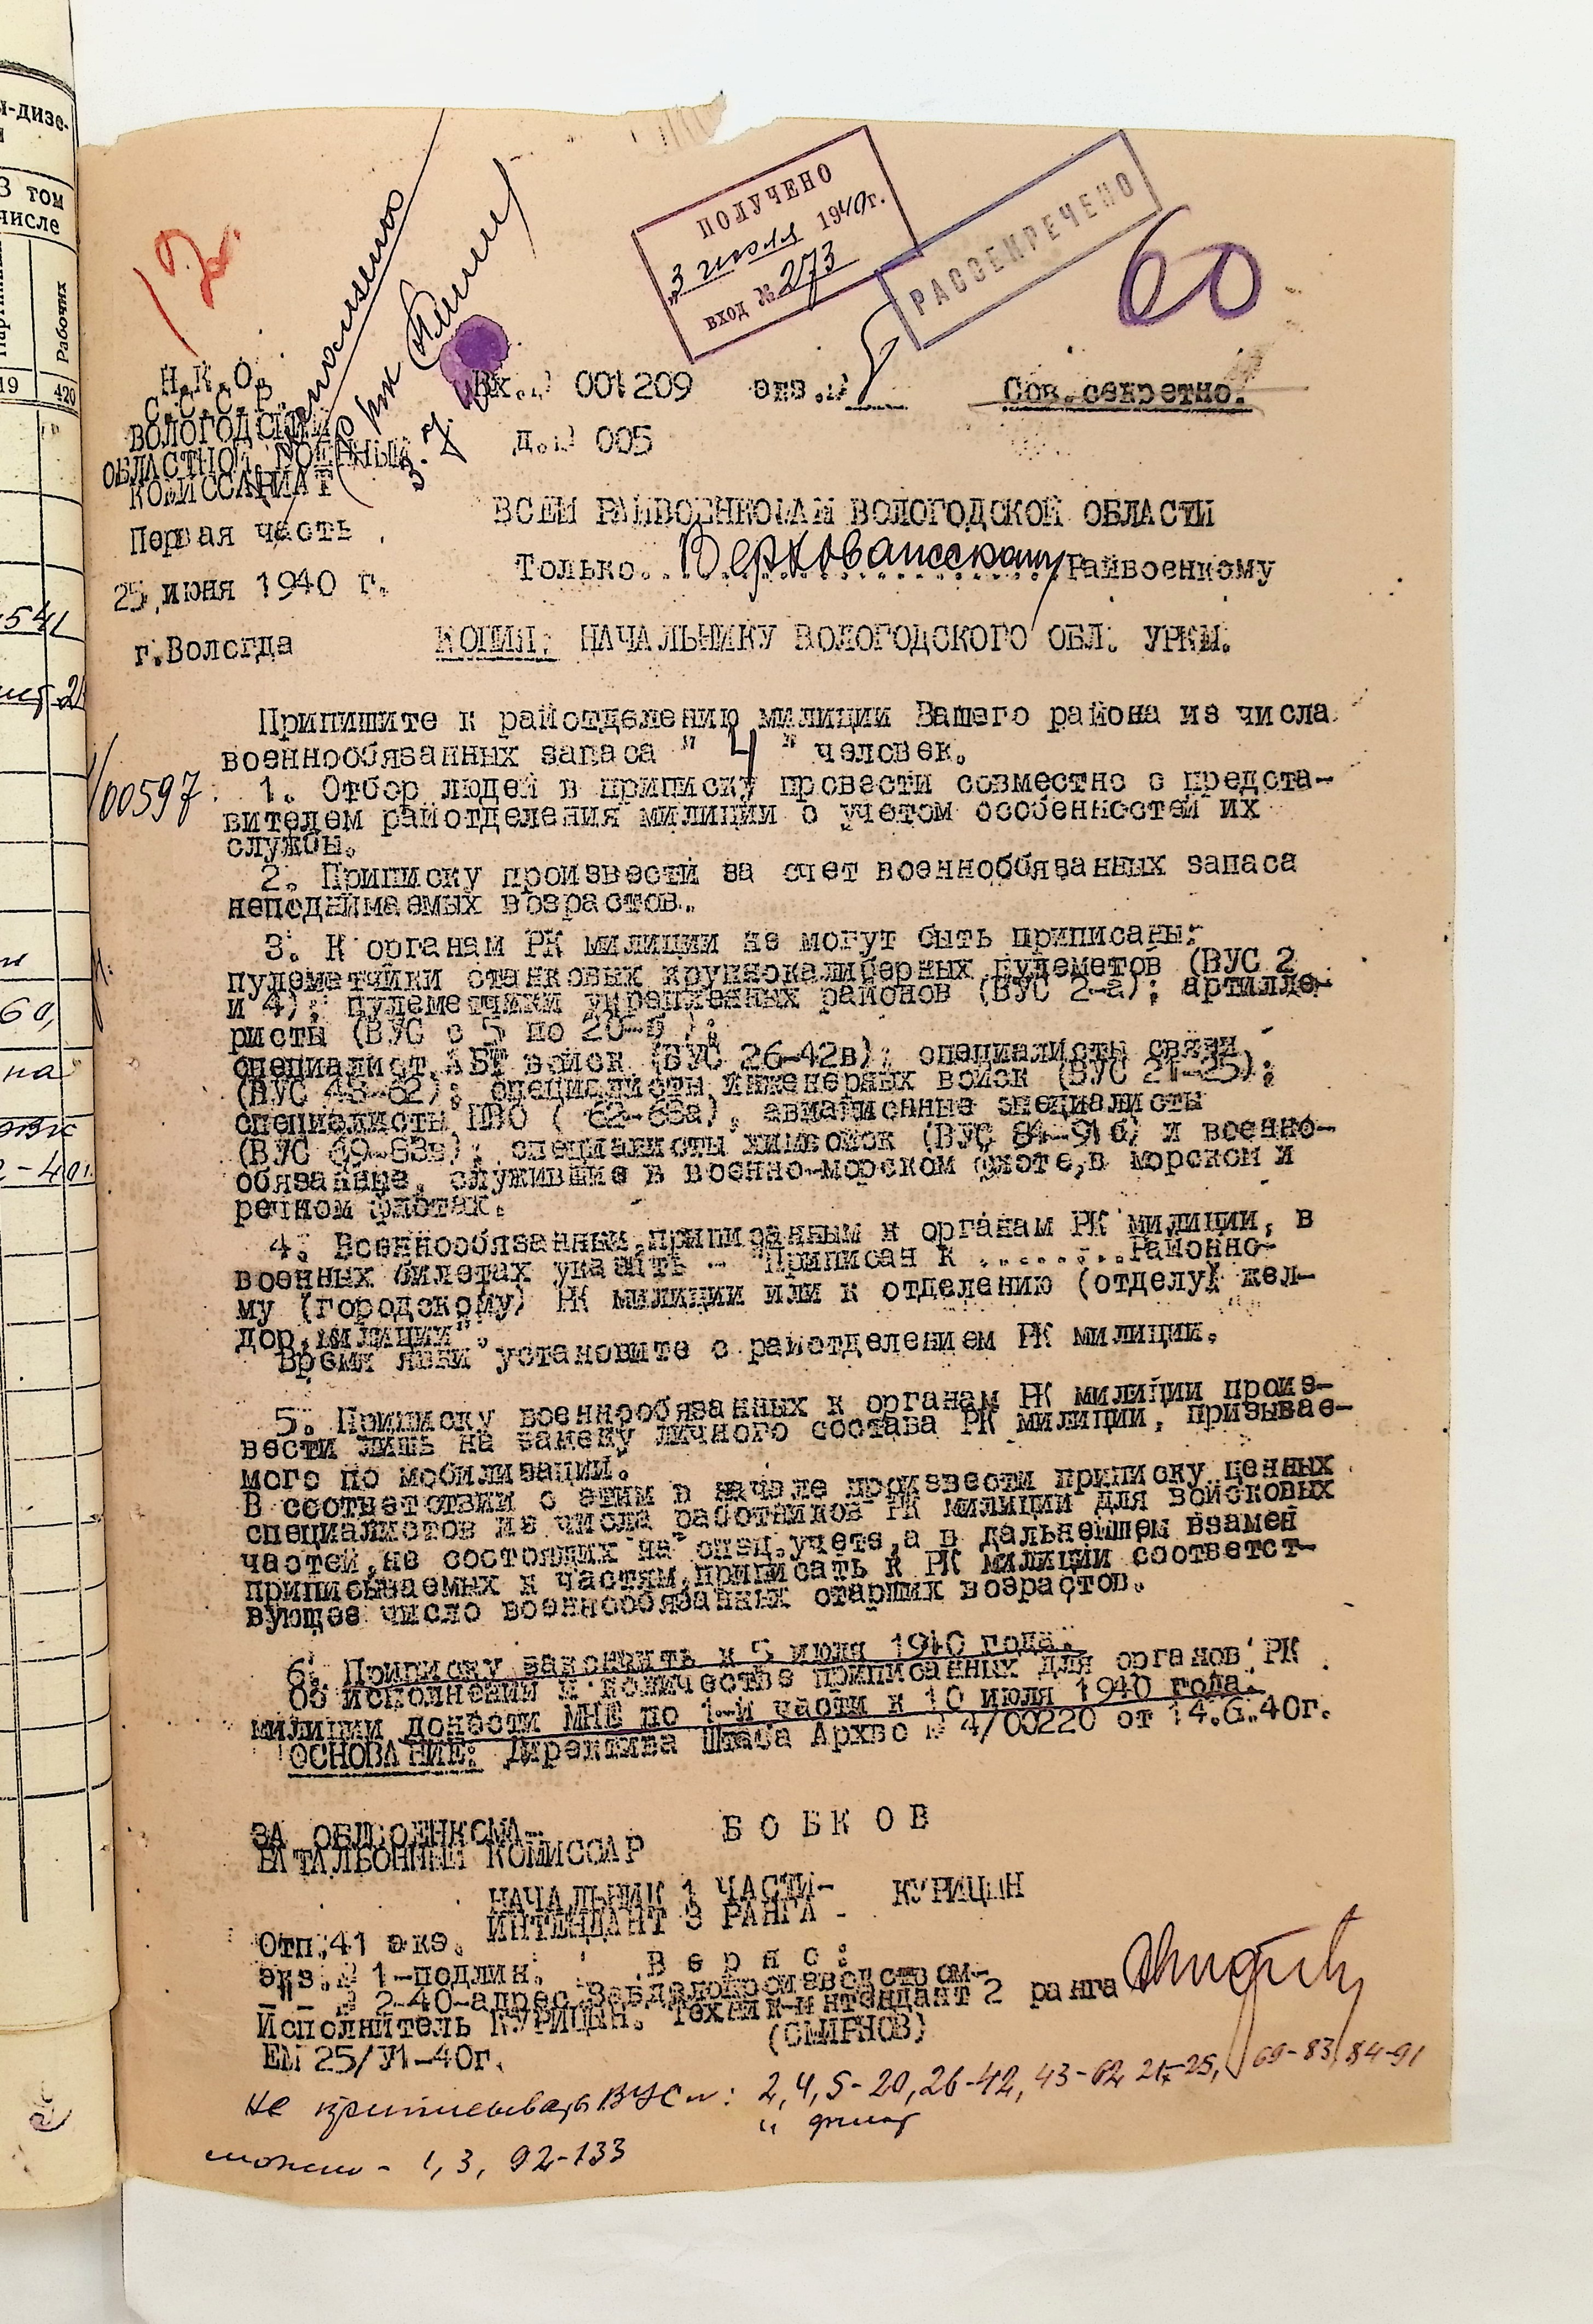 12.
ПОЛУЧЕНО
"3 июля 1940г.
ВХОД № 273
РАССЕКРЕЧЕНО
60
Н.К.О.
С.С.С.Р.
ВОЛОГОДСКИЙ
ОБЛАСТНОЙ ВОЕННЫЙ
КОМИССАРИАТ
Первая часть
25 июня 1940 г.
г.Вологда
001209 экз.№
Сов.секретно.
д.№ 005
ВСЕМ РАЙВОЕНКОМАМ ВОЛОГОДСКОЙ ОБЛАСТИ
Только Верховажскому Райвоенкому
КОПИЯ: НАЧАЛЬНИКУ ВОЛОГОДСКОГО ОБЛ. УРКМ.
Припишите к райотделению милиции Вашего района из числа
военнообязанных запаса " 4 " человек.
1/00597
1. Отбор людей в приписку провести совместно с предста-
вителем райотделения милиции с учетом особенностей их
службы.
2. Приписку произвести за счет военнообязанных запаса
неподнимаемых возрастов.
3. К органам РК милиции не могут быть приписаны:
пулеметчики станковых крупнокалиберных пулеметов (ВУС 2
и 4); пулеметчики укрепленных районов (ВУС 2-а); артилле-
ристы (ВУС с 5 по 20-б );
специалист. АБТ войск (ВУС 26-42в); специалисты связи
(ВУС 43-62); специалисты инженерных войск (ВУС 21-25);
специалисты ПВО ( 62-68а), авиационные специалисты
(ВУС 69-83в); специалисты химвойск (ВУС 84-91б) и военно-
обязанные, служившие в военно-морском флоте,в морском и
речном флотах.
4. Военнообязанным,приписанным к органам РК милиции, в
военных билетах указать - "Приписан к .........Районно-
му (городскому) РК милиции или к отделению (отделу) жел-
дор.милиции".
Время явки установите с райотделением РК милиции.
5. Приписку военнообязанных к органам РК милиции произ-
вести лишь на замену личного состава РК милиции, призывае-
мого по мобилизации.
В соответствии с этим в начале произвести приписку ценных
специалистов из числа работников РК милиции для войсковых
частей,не состоящих на спец.учете,а в дальнейшем взамен
приписываемых к частям,приписать к РК милиции соответст-
вующее число военнообязанных старших возрастов.
6. Приписку закончить к 5 июля 1940 года.
Об исполнении и количестве приписанных для органов РК
милиции донести МНЕ по 1-й части к 10 июля 1940 года.
ОСНОВАНИЕ: Директива Штаба Архво № 4/00220 от 14.6.40г.
ЗА ОБЛВОЕНКОМА-
БАТАЛЬОННЫЙ КОМИССАР
Б О Б К О В
НАЧАЛЬНИК 1 ЧАСТИ-
ИНТЕНДАНТ 3 РАНГА -
КУРИЦЫН
Отп.41 экз.
экз.№ 1-подлин.
-"- № 2-40-адрес.
Исполнитель КУРИЦЫН.
ЕМ 25/У1-40г.
В е р н о :
Завделопроизводством-
Техник-интендант 2 ранга
(СМИРНОВ)
Не приписывать ВУС №: 2,4,5-20,26-42,43-62 21-25, 69-83,84-91
" флот
можно - 1, 3, 92-133